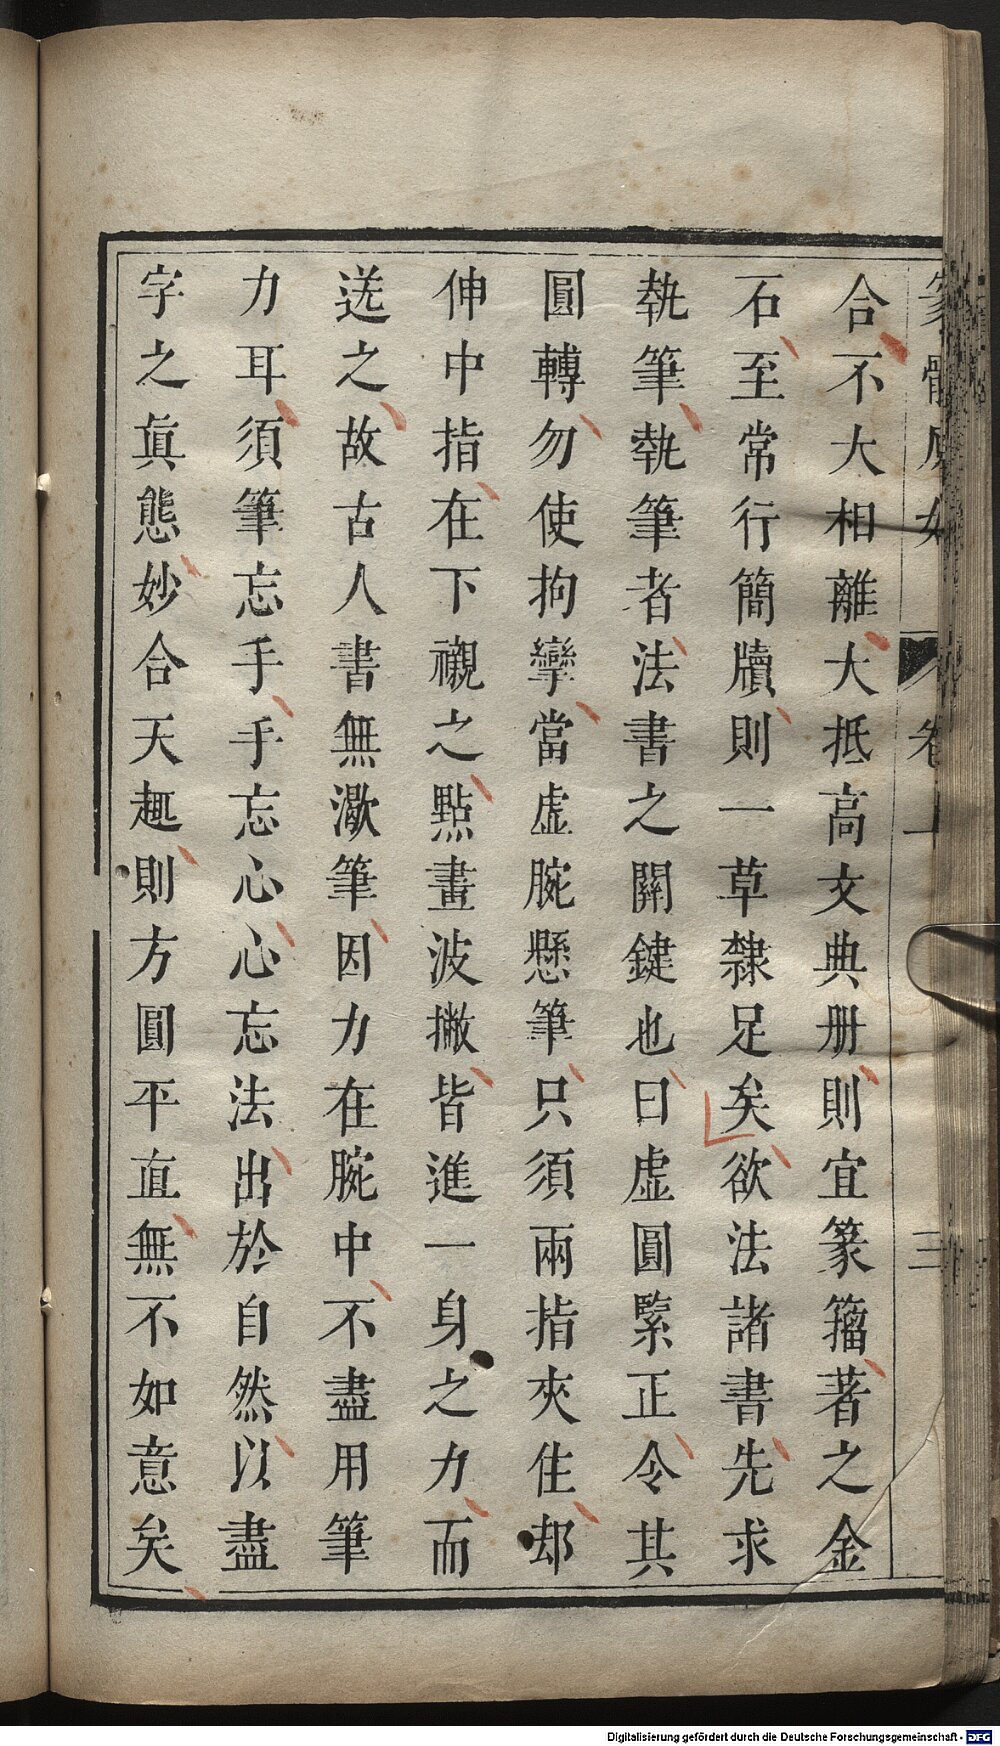 合不大相離大抵高文典册則宜篆籒著之金
石至常行簡牘則一草隸足矣欲法諸書先求
執筆執筆者法書之關鍵也曰虛圓緊正令其
圓轉勿使拘攣當虛腕懸筆只須兩指夾住却
伸中指在下襯之點畫波撇皆進一身之力而
送之故古人書無澂筆因力在腕中不盡用筆
力耳須筆忘手手忘心心忘法出於自然以盡
字之眞態妙合天趣則方圓平直無不如意矣
卷一
三
Digitalisierung gefördert durch die Deutsche Forschungsgemeinschaft - DFG